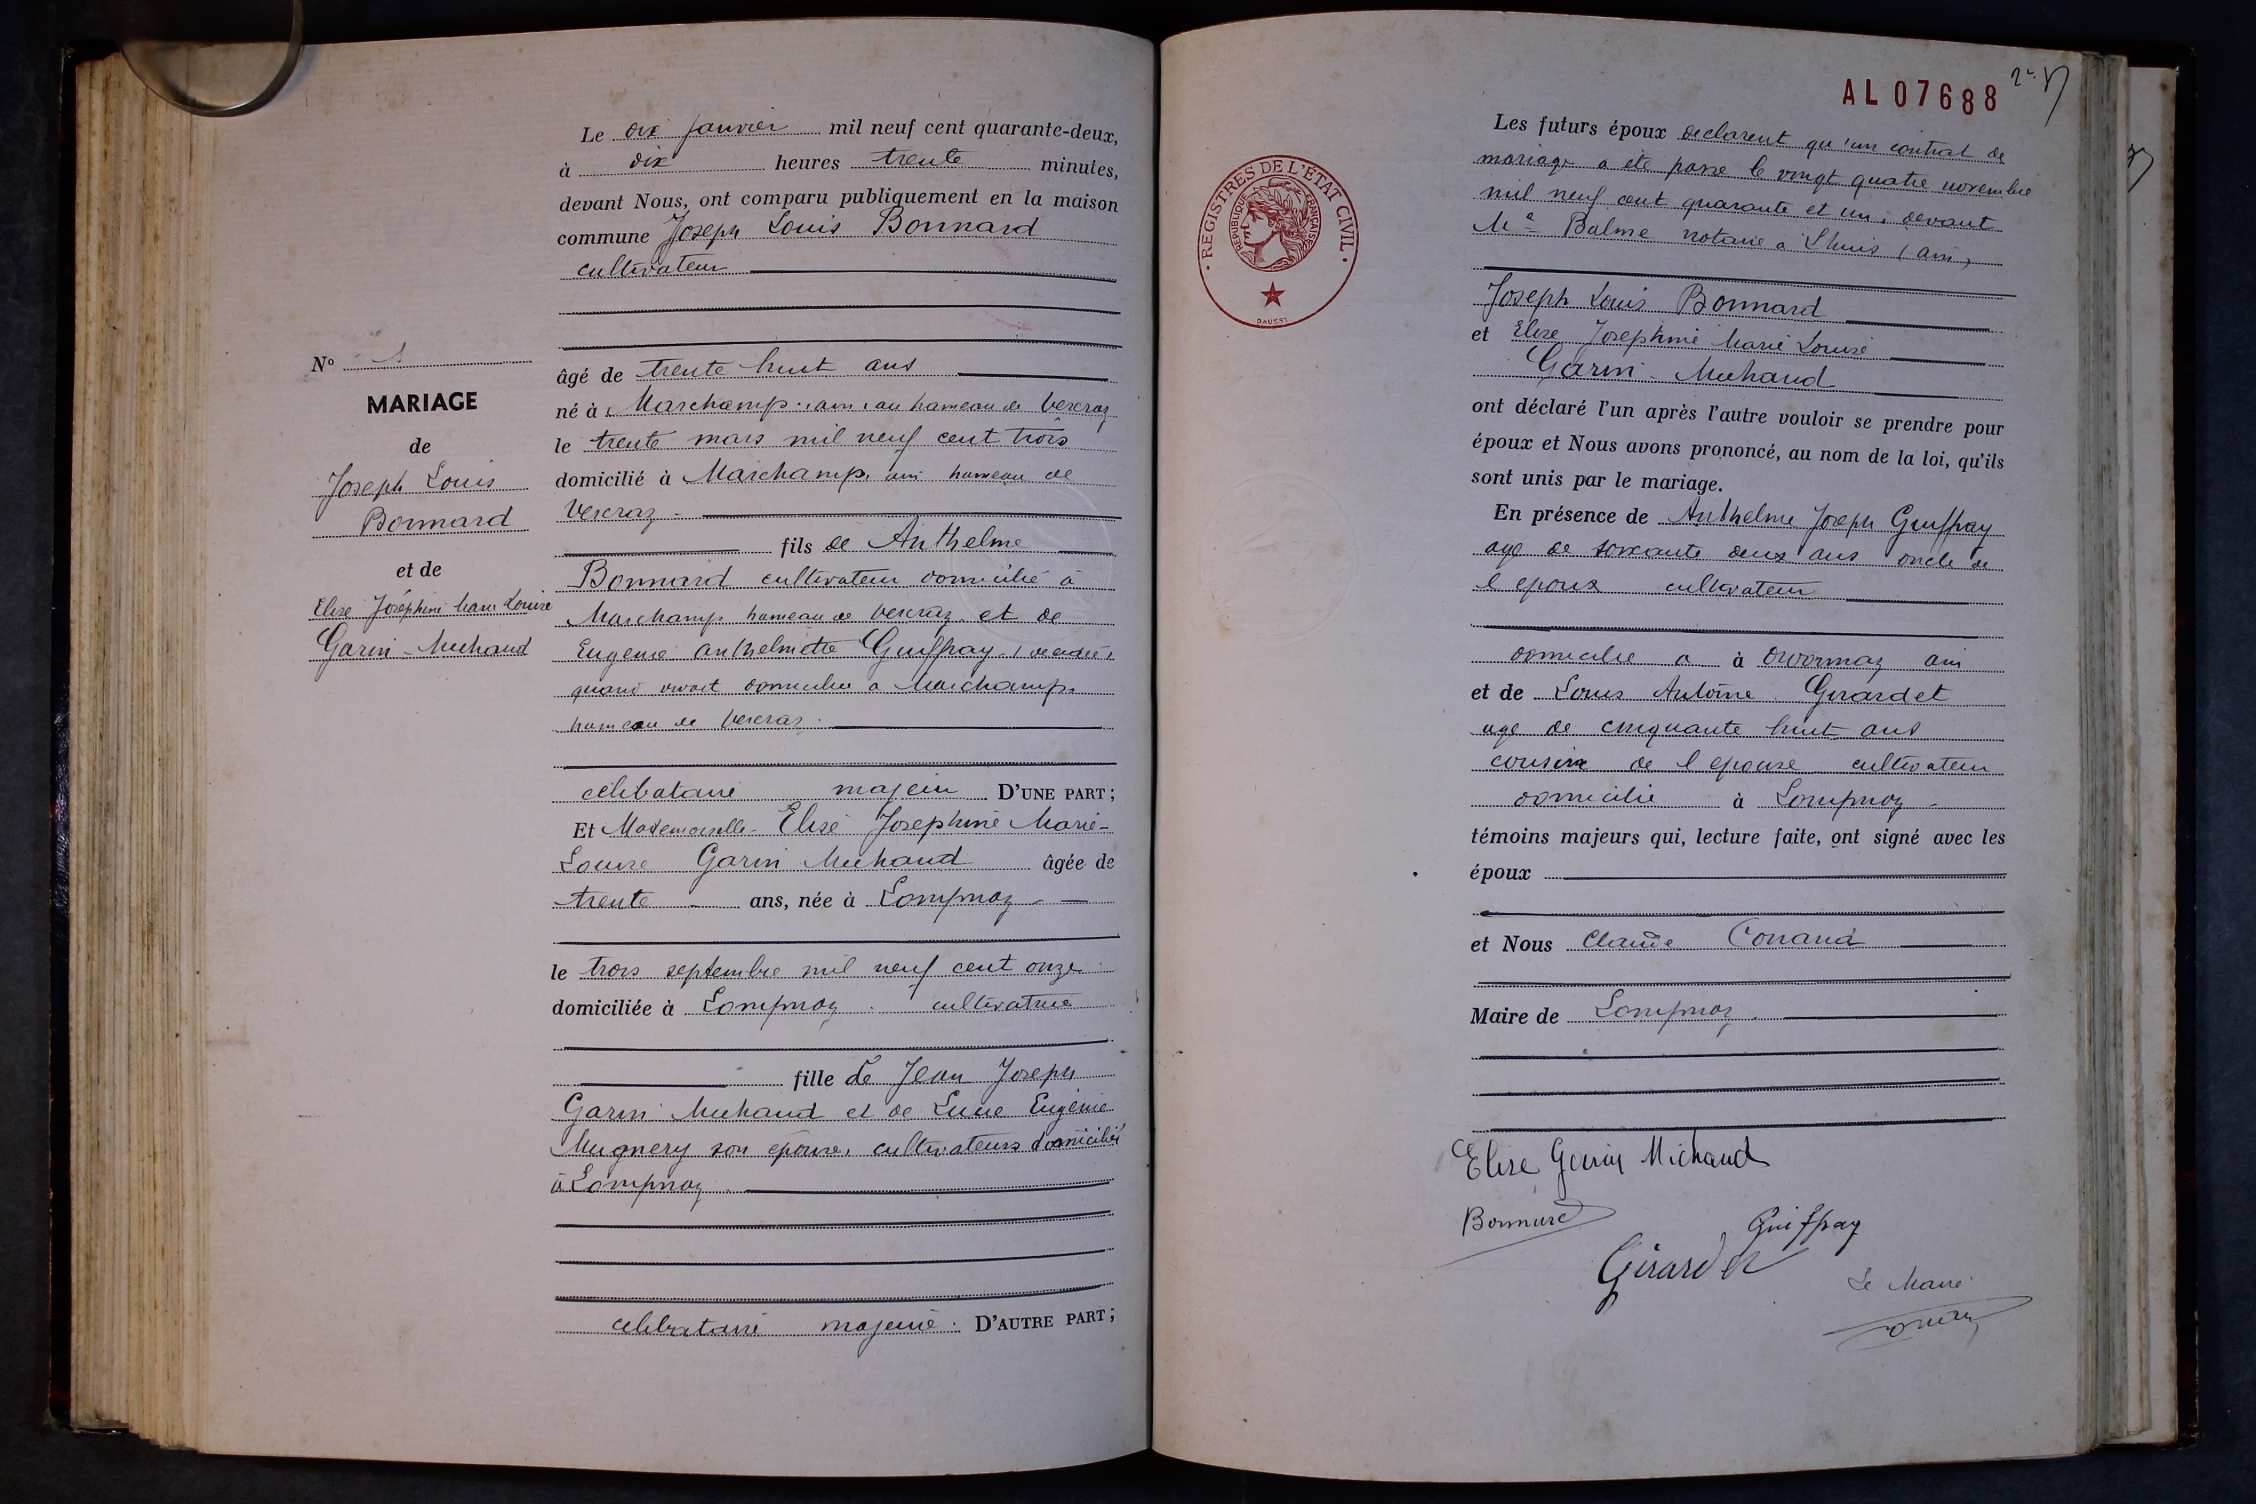 Le dix janvier mil neuf cent quarante-deux,
à dix heures trente minutes,
devant Nous, ont comparu publiquement en la maison
commune Joseph Louis Bonnard
cultivateur
N° 1
MARIAGE
de
Joseph Louis
Bonnard
et de
Elise Joséphine Marie Louise
Garin-Michaud
âgé de trente huit ans
né à Marchamp (ain) au hameau de Vercraz
le trente mars mil neuf cent trois
domicilié à Marchamp ain hameau de
Vercraz
fils de Anthelme
Bonnard cultivateur domicilié à
Marchamp hameau de Vercraz et de
Eugenie Anthelmette Guiffray (décédée)
quand vivait domiciliée a Marchamp
hameau de Vercraz
célibataire majeur D'UNE PART;
Et Mademoiselle Elise Josephine Marie-
Louise Garin Michaud âgée de
trente ans, née à Lompnaz
le trois septembre mil neuf cent onze
domiciliée à Lompnaz cultivatrice
fille de Jean Joseph
Garin Michaud et de Eugénie
Mugnery son épouse, cultivateurs domiciliés
à Lompnaz
célibataire majeure D'AUTRE PART;
AL 07688
2e
REGISTRES DE L'ÉTAT CIVIL
RÉPUBLIQUE FRANÇAISE
Les futurs époux declarent qu'un contrat de
mariage a été passé le vingt quatre novembre
mil neuf cent quarante et un, devant
Me Balme notaire a Lhuis (ain)
Joseph Louis Bonnard
et Elise Josephine Marie Louise
Garin-Michaud
ont déclaré l'un après l'autre vouloir se prendre pour
époux et Nous avons prononcé, au nom de la loi, qu'ils
sont unis par le mariage.
En présence de Anthelme Joseph Guiffray
agé de soixante deux ans oncle de
l epoux cultivateur
domicilie a à ain
et de Louis Antoine Girardet
age de cinquante huit ans
cousin de l epouse cultivateur
domicilié à Lompnaz
témoins majeurs qui, lecture faite, ont signé avec les
époux
et Nous Claude Conand
Maire de Lompnaz
Elise Garin Michaud
Bonnard
Guiffray
Girardet
Le Maire
Conand